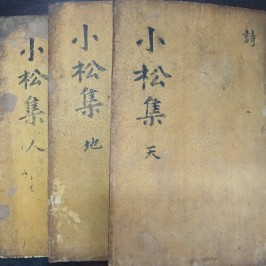 詩
小松集 天
小松集 地
小松集 人